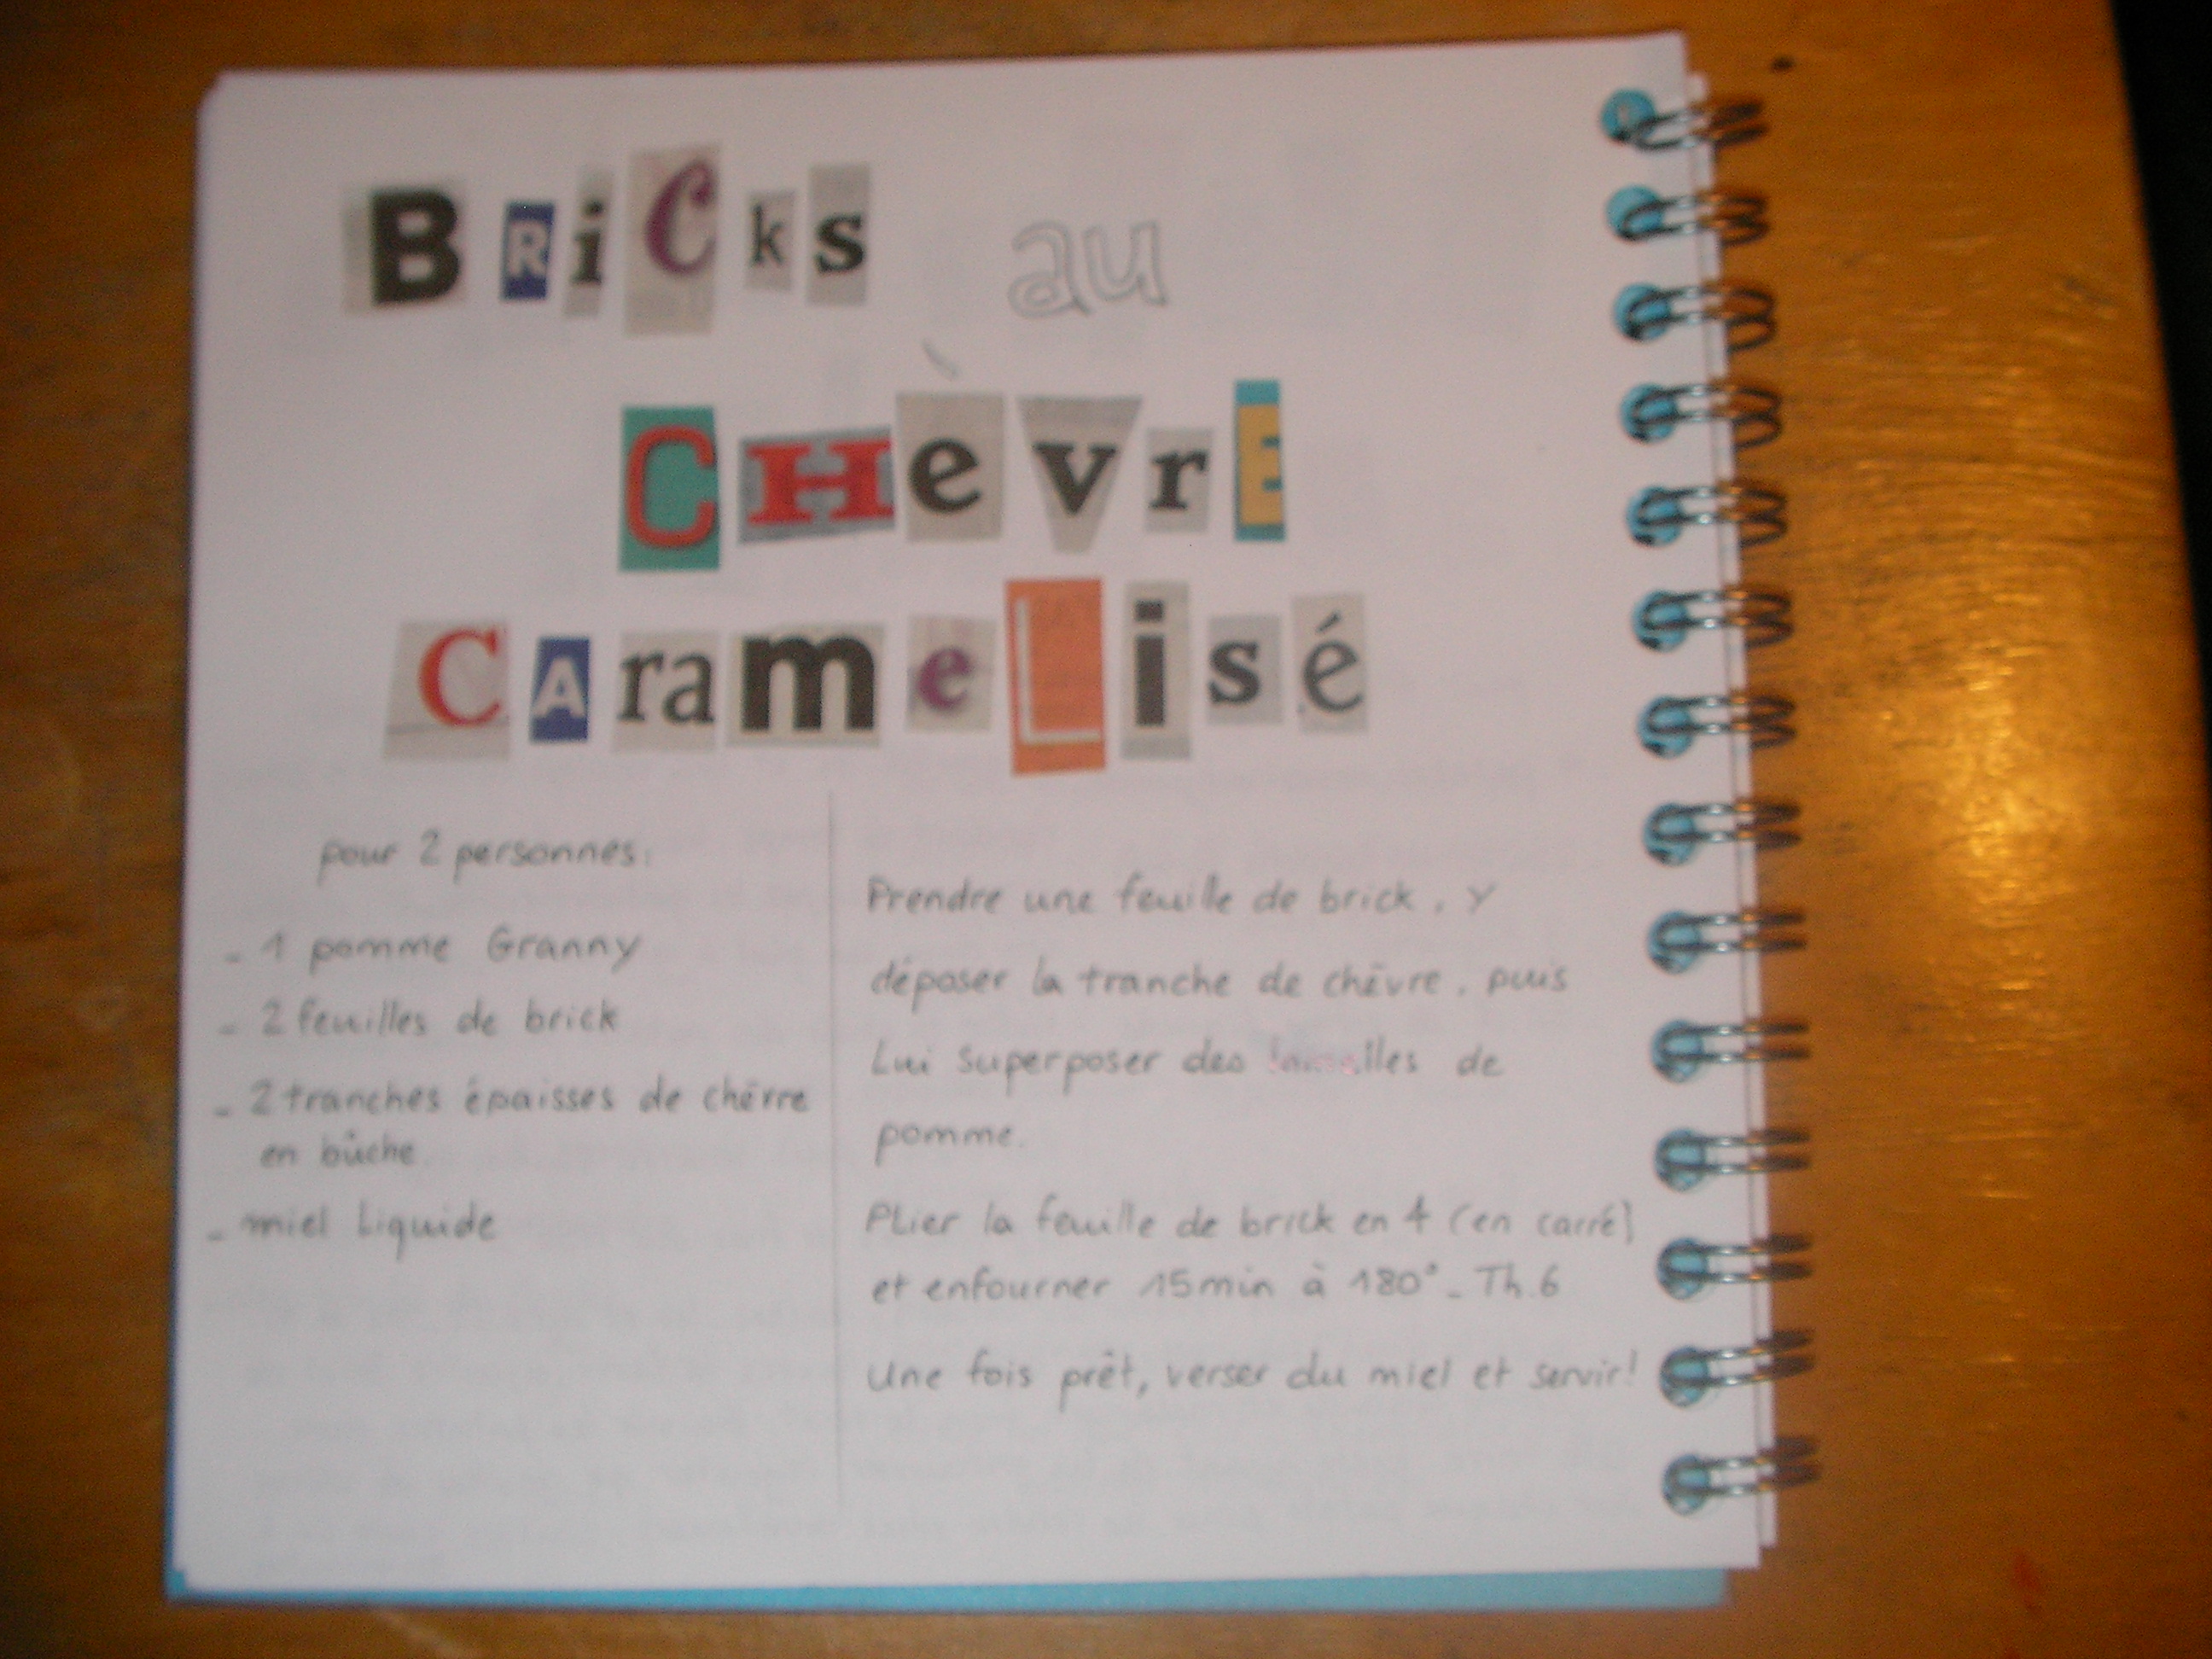 BRiCks au
CHèvrE
CArameLisé
pour 2 personnes:
- 1 pomme Granny
- 2 feuilles de brick
- 2 tranches épaisses de chèvre
en bûche
- miel liquide
Prendre une feuille de brick. Y
déposer la tranche de chèvre, puis
Lui superposer des lamelles de
pomme.
Plier la feuille de brick en 4 (en carré)
et enfourner 15min à 180°_ Th.6
Une fois prêt, verser du miel et servir!